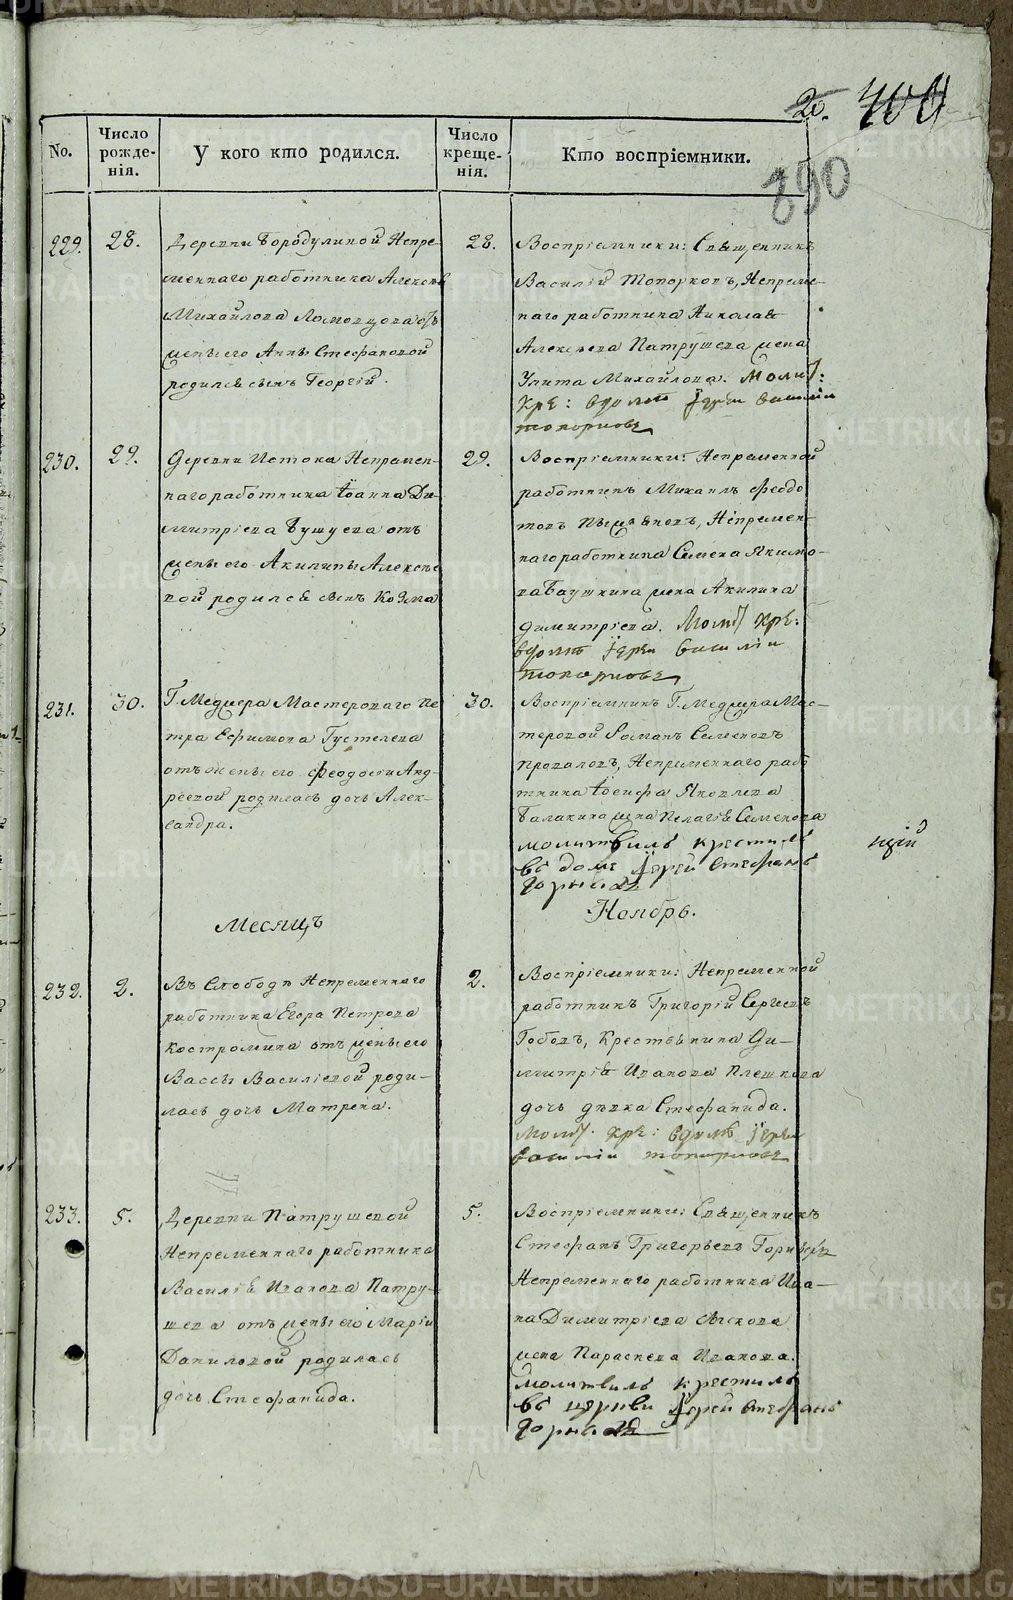 20. 400
890
No.
Число рожде-нія.
У кого кто родился.
Число креще-нія.
Кто воспріемники.
229.
28.
Деревни Бородулиной Непре-
меннаго работника Алексѣя
Михайлова Ломовцова отъ
жены его Анны Стефановой
родился сынъ Георгій.
28.
Воспріемники: Священникъ
Василій Топорковъ, Непреме-
наго работника Николая
Алексѣева Патрушева жена
Улита Михайлова. Молит:
кре: вдомѣ іереи василіи
топорковъ
230.
29.
Деревни Истока Непремен-
наго работника Іоанна Ди-
митріева Бушуева отъ
жены его Акилины Алексѣе
вой родился сынъ Козма
29.
Воспріемники: Непременной
работникъ Михаилъ Феодо
товъ Пьянковъ, Непремен-
наго работника Симена Якимо-
ва Баушкина жена Акилина
Димитріева. Молит кре:
вдомѣ іереи василіи
топорковъ
231.
30.
Г. Меджера Мастероваго Пе
тра Ефимова Густелева
отъ жены его Феодосіи Анд-
реевой родилась дочь Алек-
сандра.
30.
Воспріемникъ Г. Меджера Мас-
теровой Романъ Семеновъ
Проваловъ, Непременнаго рабо
тника Іосифа Яковлева
Балакина жена Пелагія Семенова
молитвилъ крестилъ
въ доме Іерей Стефанъ
Горны
щій
Месяцъ
Ноябрь.
232.
2.
Въ Слободѣ Непременнаго
работника Егора Петрова
Костромина отъ жены его
Вассы Василіевой роди-
лась дочь Матрена.
2.
Воспріемники: Непременной
работникъ Григорій Сергеевъ
Гобовъ, Крестьянина Ди-
митрія Иванова Плешкова
дочь дѣвка Стефанида.
Молит. кре: вдомѣ іереи
василіи топорковъ
233.
5.
Деревни Патрушевой
Непременнаго работника
Василія Иванова Патру-
шева отъ жены его Маріи
Даниловой родилась
дочь Стефанида.
5.
Воспріемники: Священникъ
Стефанъ Григорьевъ
Непременнаго работника Ива-
на Димитріева жена Параскева Иванова.
молитвилъ крестилъ
въ церкви Іерей Стефанъ
METRIKI.GASO-URAL.RU